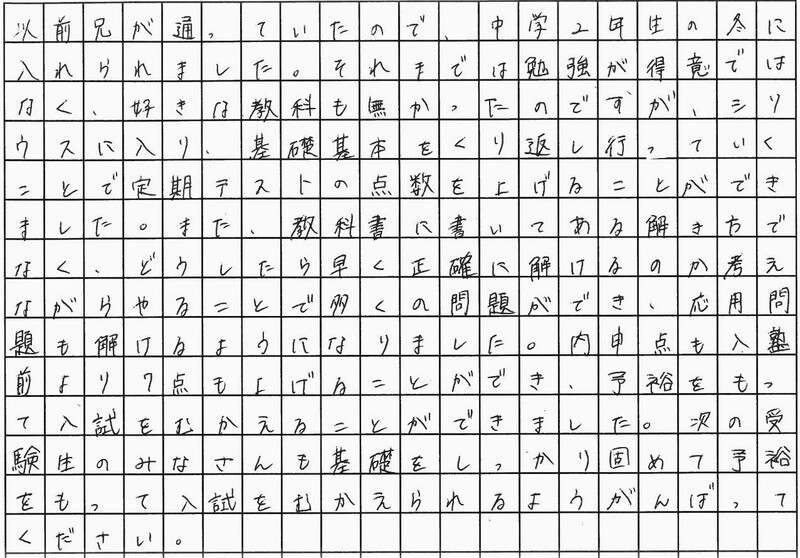 以前兄が通っていたので、中学2年生の冬に
入れられました。それまでは勉強が得意では
なく、好きな教科も無かったのですが、シリ
ウスに入り、基礎基本をくり返し行っていく
ことで定期テストの点数を上げることができ
ました。また、教科書に書いてある解き方で
なく、どうしたら早く正確に解けるのか考え
ながらやることで多くの問題ができ、応用問
題も解けるようになりました。内申点も入塾
前より7点も上げることができ、予裕をもっ
て入試をむかえることができました。次の受
験生のみなさんも基礎をしっかり固めて予裕
をもって入試をむかえられるようがんばって
ください。